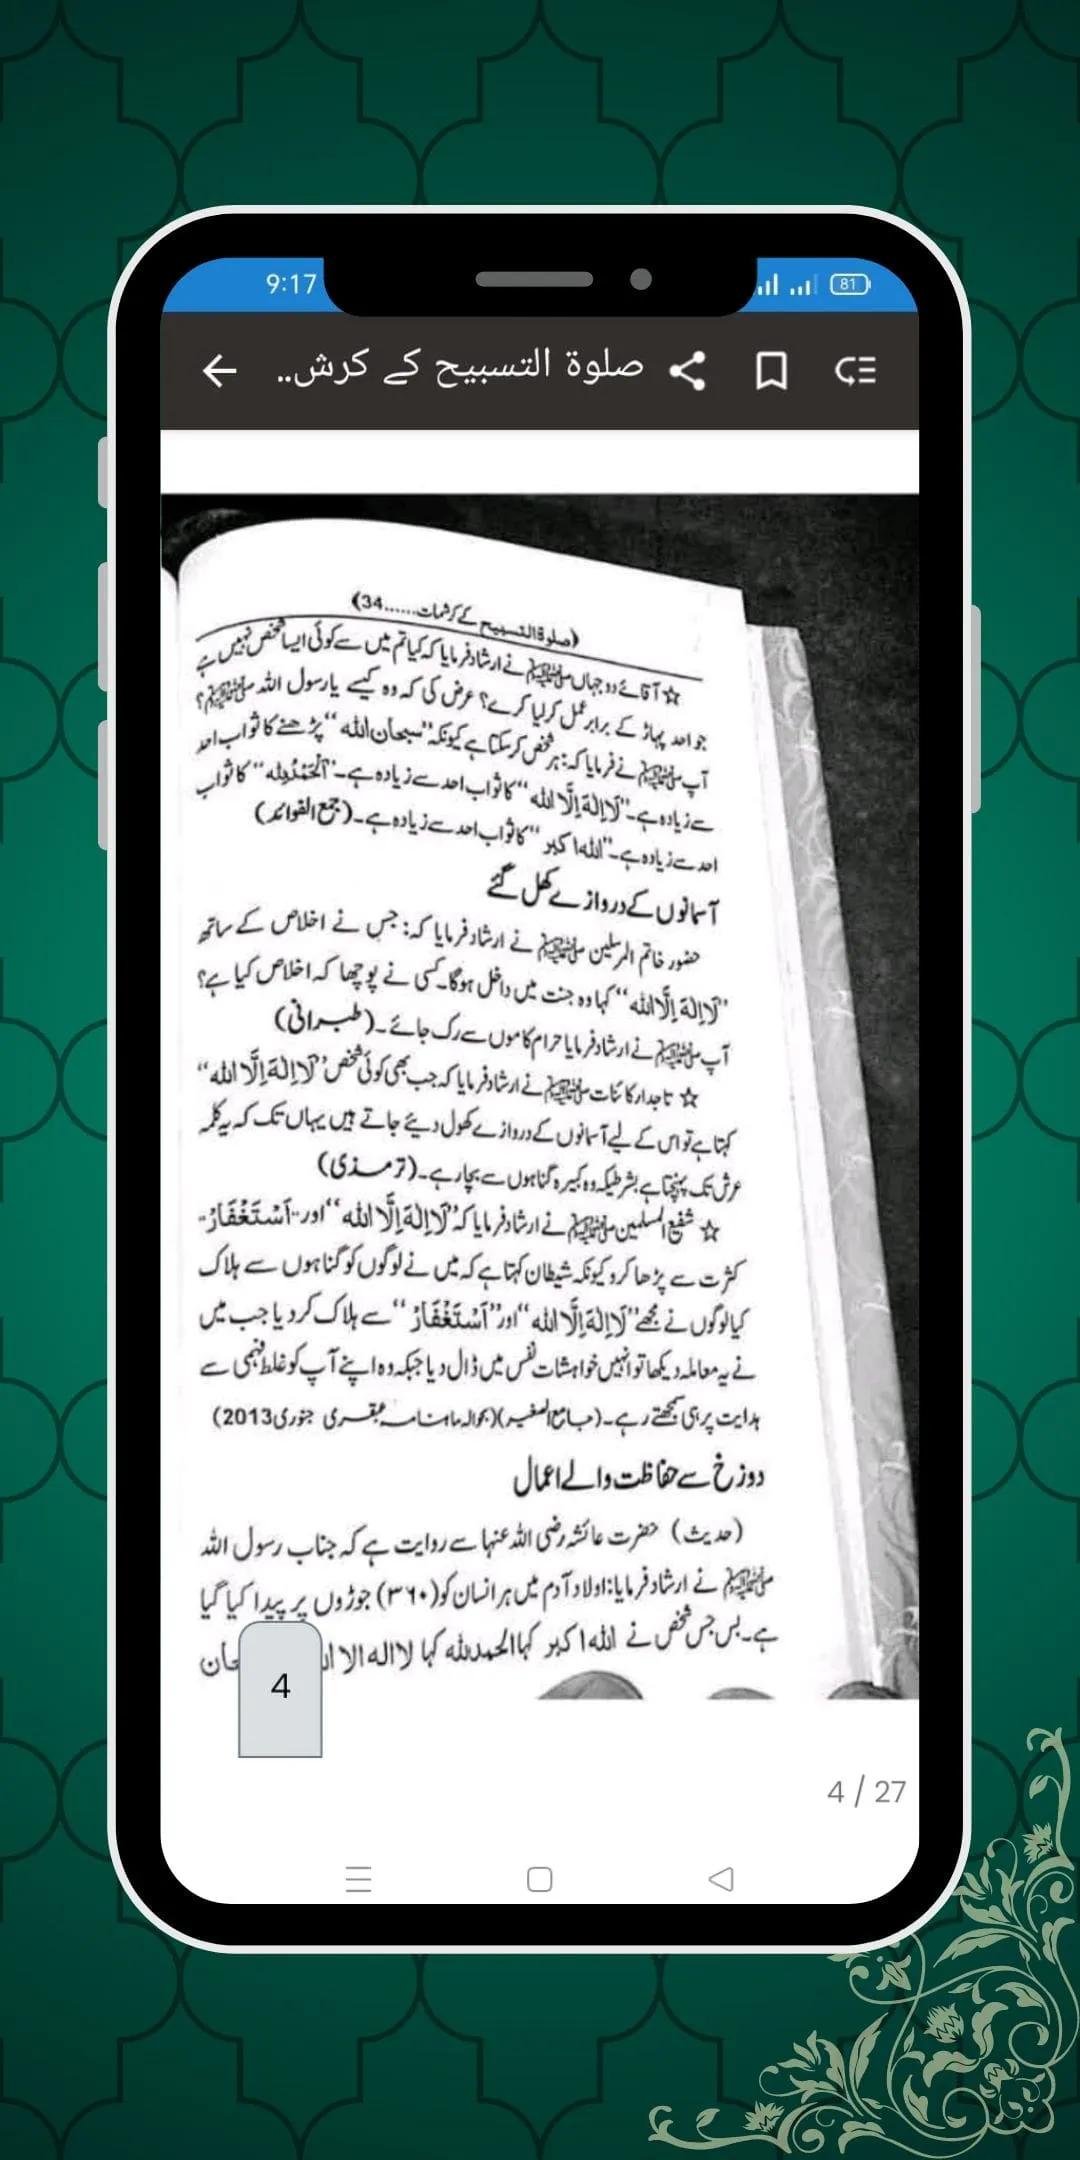 9:17
81
صلوۃ التسبیح کے کرش..
(صلوۃ التسبیح کے کرشمات......34)
☆ آقائے دو جہاں ﷺ نے ارشاد فرمایا کہ کیا تم میں سے کوئی ایسا شخص نہیں ہے
جو احد پہاڑ کے برابر عمل کر لیا کرے؟ عرض کی کہ وہ کیسے یا رسول اللہ ﷺ؟
آپ ﷺ نے فرمایا کہ: ہر شخص کر سکتا ہے کیونکہ "سبحان اللہ" پڑھنے کا ثواب احد
سے زیادہ ہے۔ "لَا اِلٰهَ اِلَّا اللہ" کا ثواب احد سے زیادہ ہے۔ "اَلْحَمْدُلِلّٰہ" کا ثواب
احد سے زیادہ ہے۔ "اللہ اکبر" کا ثواب احد سے زیادہ ہے۔ (جمع الفوائد)
آسمانوں کے دروازے کھل گئے
حضور خاتم المرسلین ﷺ نے ارشاد فرمایا کہ: جس نے اخلاص کے ساتھ
"لَا اِلٰهَ اِلَّا اللہ" کہا وہ جنت میں داخل ہوگا۔ کسی نے پوچھا کہ اخلاص کیا ہے؟
آپ ﷺ نے ارشاد فرمایا حرام کاموں سے رک جائے۔ (طبرانی)
☆ تاجدار کائنات ﷺ نے ارشاد فرمایا کہ جب بھی کوئی شخص "لَا اِلٰهَ اِلَّا اللہ"
کہتا ہے تو اس کے لیے آسمانوں کے دروازے کھول دیئے جاتے ہیں یہاں تک کہ یہ کلمہ
عرش تک پہنچتا ہے بشرطیکہ وہ کبیرہ گناہوں سے بچا رہے۔ (ترمذی)
☆ شفیع المسلمین ﷺ نے ارشاد فرمایا کہ "لَا اِلٰهَ اِلَّا اللہ" اور "اَسْتَغْفَارْ"
کثرت سے پڑھا کرو کیونکہ شیطان کہتا ہے کہ میں نے لوگوں کو گناہوں سے ہلاک
کیا لوگوں نے مجھے "لَا اِلٰهَ اِلَّا اللہ" اور "اَسْتَغْفَارْ" سے ہلاک کر دیا جب میں
نے یہ معاملہ دیکھا تو انہیں خواہشات نفس میں ڈال دیا جبکہ وہ اپنے آپ کو غلط فہمی سے
ہدایت پر ہی سمجھتے رہے۔ (جامع الصغیر) (بحوالہ ماہنامہ عبقری جنوری 2013)
دوزخ سے حفاظت والے اعمال
(حدیث) حضرت عائشہ رضی اللہ عنہا سے روایت ہے کہ جناب رسول اللہ
ﷺ نے ارشاد فرمایا: اولاد آدم میں ہر انسان کو (۳۶۰) جوڑوں پر پیدا کیا گیا
ہے۔ بس جس شخص نے اللہ اکبر کہا الحمد للہ کہا لا الہ الا
4
4 / 27